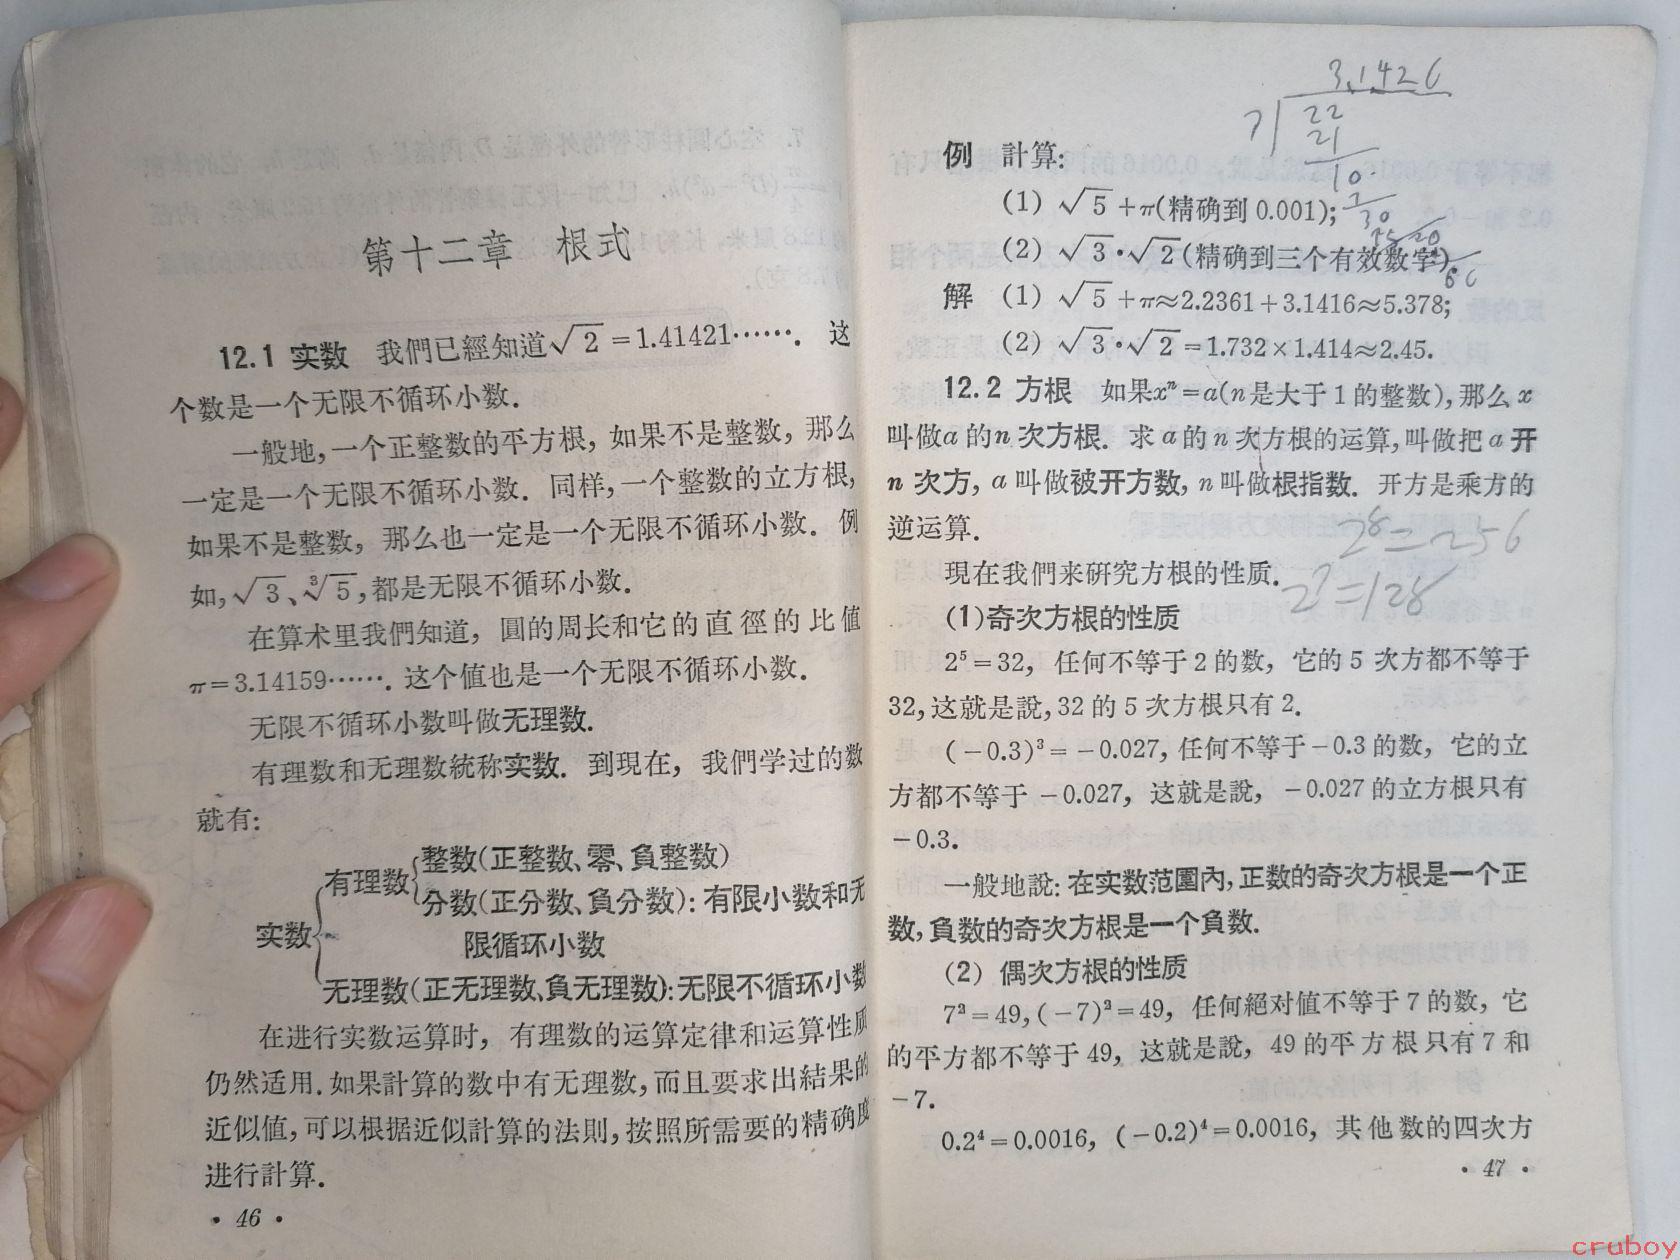 第十二章 根式
12.1 实数 我們已經知道√2=1.41421……. 这
个数是一个无限不循环小数.
一般地,一个正整数的平方根,如果不是整数,那么
一定是一个无限不循环小数. 同样,一个整数的立方根,
如果不是整数, 那么也一定是一个无限不循环小数. 例
如,√3、∛5,都是无限不循环小数.
在算术里我們知道, 圓的周长和它的直徑的比值
π=3.14159……. 这个値也是一个无限不循环小数.
无限不循环小数叫做无理数.
有理数和无理数統称实数. 到現在, 我們学过的数
就有:
整数(正整数、零、負整数)
有理数
分数(正分数、負分数): 有限小数和无
实数
限循环小数
无理数(正无理数、負无理数):无限不循环小数
在进行实数运算时, 有理数的运算定律和运算性质
仍然适用.如果計算的数中有无理数,而且要求出結果的
近似值,可以根据近似計算的法則,按照所需要的精确度
进行計算.
• 46 •
3.1426
7 22
21
10
7
30
20
60
例 計算:
(1) √5+π(精确到 0.001);
(2) √3·√2(精确到三个有效数字).
解 (1) √5+π≈2.2361+3.1416≈5.378;
(2) √3·√2=1.732×1.414≈2.45.
12.2 方根 如果xⁿ=a(n是大于1的整数),那么x
叫做a的n次方根. 求a的n次方根的运算,叫做把a开
n次方, a叫做被开方数, n叫做根指数. 开方是乘方的
逆运算.
2⁸=256
現在我們来研究方根的性质.
2⁷=128
(1)奇次方根的性质
2⁵=32, 任何不等于2的数, 它的5次方都不等于
32,这就是說,32的5次方根只有2.
(−0.3)³=−0.027,任何不等于−0.3的数, 它的立
方都不等于 −0.027, 这就是說, −0.027的立方根只有
−0.3.
一般地說:在实数范圍內,正数的奇次方根是一个正
数,負数的奇次方根是一个負数.
(2) 偶次方根的性质
7²=49,(−7)²=49, 任何絕对值不等于7的数, 它
的平方都不等于49, 这就是說, 49的平方根只有7和
−7.
0.2⁴=0.0016, (−0.2)⁴=0.0016, 其他数的四次方
• 47 •
cruboy